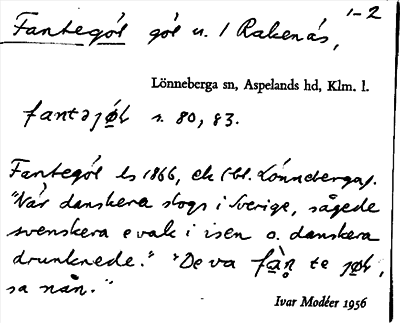 1-2
Fantegöl göl n. 1 Rakenäs,
Lönneberga sn, Aspelands hd, Klm. l.
fantəjøl s. 80, 83.
Fantegöl ls 1866, ek (bl. Lönneberga).
"När danskera slogs i Sverige, sågede
svenskera e vak i isen o. danskera
drunknede." "De va fàn̥ te jøl,
sa nån."
Ivar Modéer 1956